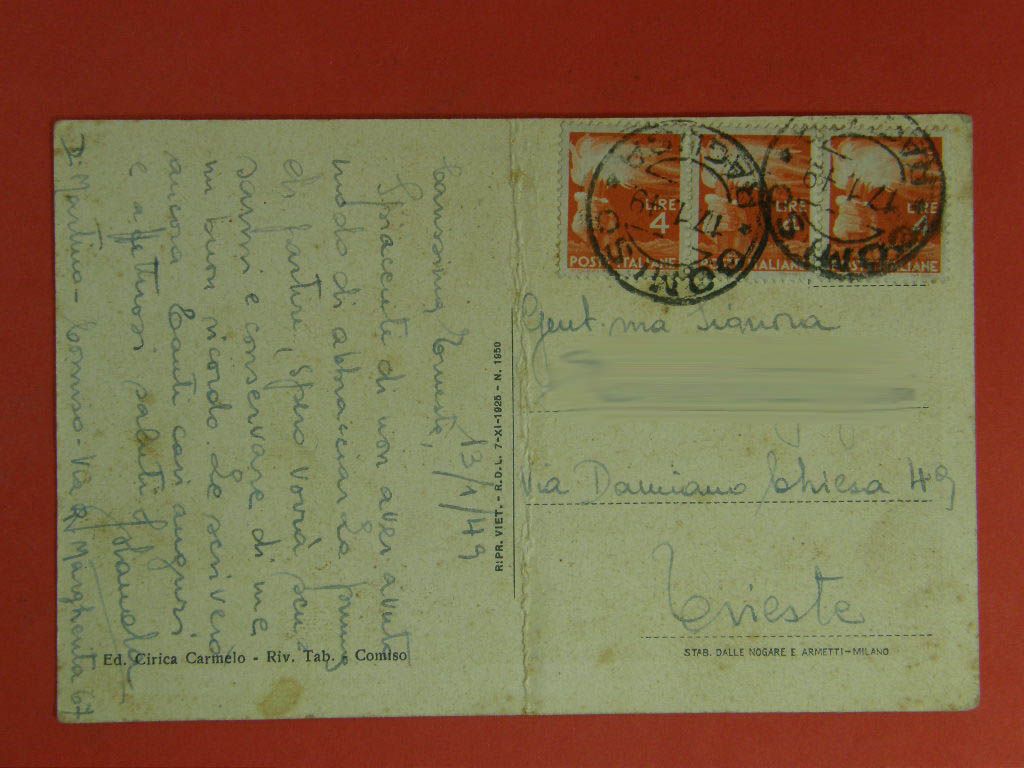 13/1/49
Carissima Ernesta,
Spiacente di non aver avuto
modo di abbracciarLa prima
di partire, spero vorrà scu-
sarmi e conservare di me
un buon ricordo. Le scriverò
ancora. Tanti cari auguri
e affettuosi saluti Jolanda
Di Martino - Comiso - Via R. Margherita 67
Ed. Cirica Carmelo - Riv. Tab. - Comiso
RIPR. VIET. - R.D.L. 7-XI-1925 - N. 1950
LIRE 4
POSTE ITALIANE
LIRE 4
POSTE ITALIANE
LIRE 4
POSTE ITALIANE
COMISO
RAGUSA
17.1.49
COMISO
RAGUSA
17.1.49
Gent.ma Signora
Via Damiano Chiesa 49
Trieste
STAB. DALLE NOGARE E ARMETTI - MILANO